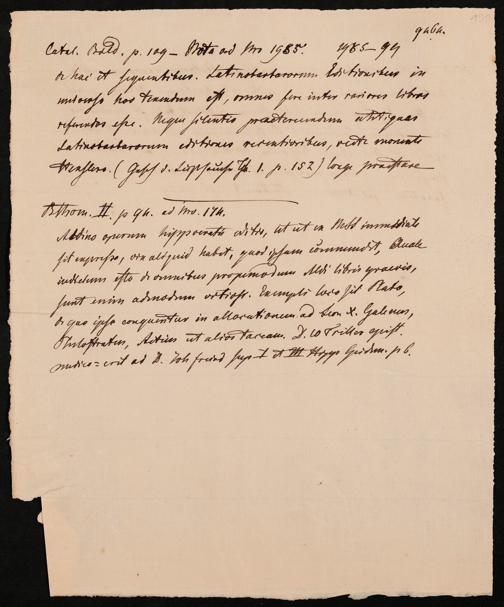 Catal. Bald. p. 109 – Nota ad Nro 1985. 1985–94
de hac et sequentibus. Latinobarbarorum Editionibus in
universo hoc tenendum est, omnes fere inter rariores libros
referendos esse. Neque silentio praetereundum antiquas
Latinobarbarorum editiones recentioribus, recte monente
Henslero. (Gesch. d. Lustseuche Th. 1. p. 152) longe praestare
II. p. 94. ad Nro. 174.
operum Hippocratis editio, ut ut ex Msto immediate
sit expressa, vix aliquid habet, quod ipsam commendet, Quale
indicium esto de omnibus propemodum Aldi libris graecis,
sunt enim admodum vitiosi. Exempli loco sit Plato,
de quo ipse conqueritur in allocutionem ad Leon X. Galenus,
Philostratus, Aetius ut alios taceam. D. W Triller epist.
medico-crit ad D. Joh Freind sup. I et III Hipp Epidem. p 6.